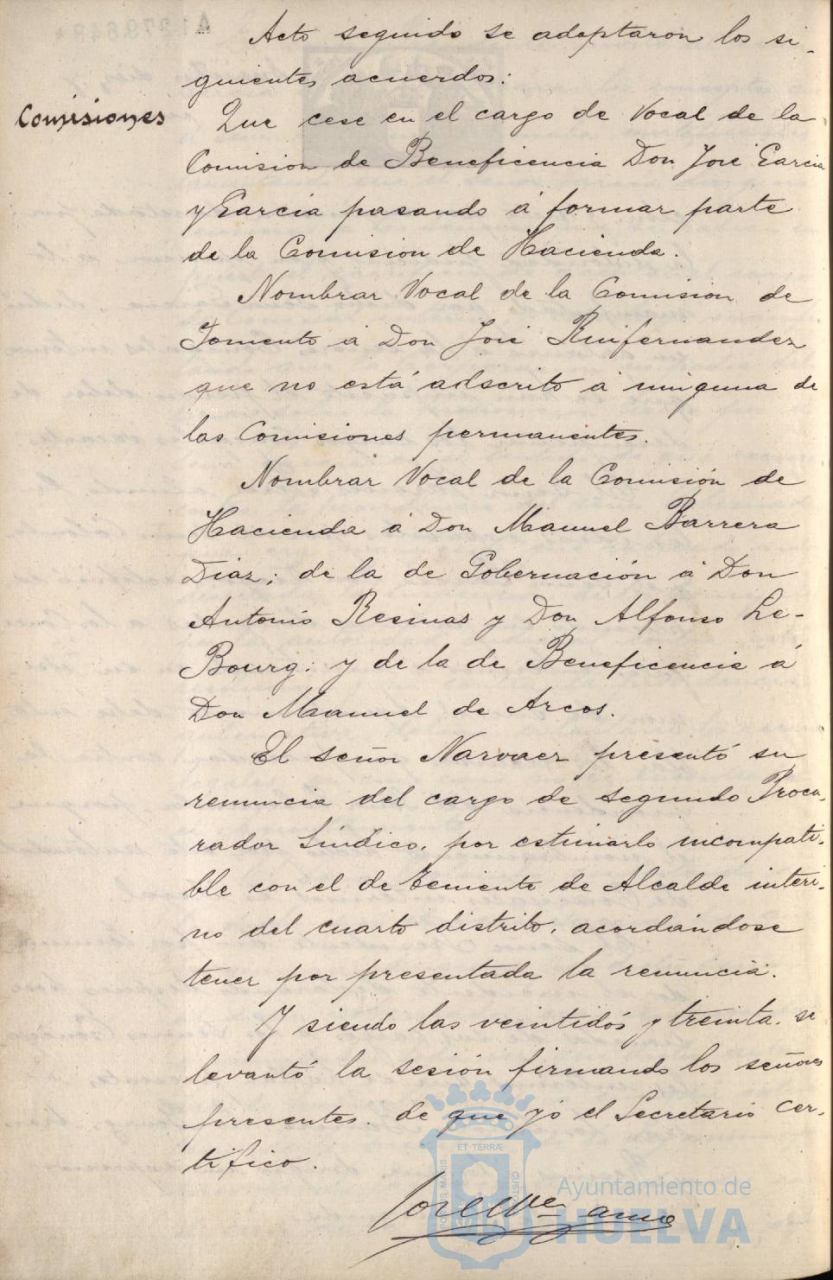 Acto seguido se adoptaron los si-
guientes acuerdos:
Comisiones
Que cese en el cargo de Vocal de la
Comision de Beneficencia Don José Garcia
y Garcia pasando á formar parte
de la Comision de Hacienda.
Nombrar Vocal de la Comision de
Fomento á Don José Ruifernandez
que no está adscrito á ninguna de
las Comisiones permanentes.
Nombrar Vocal de la Comisión de
Hacienda á Don Manuel Barrera
Diaz; de la de Gobernación á Don
Antonio Resinas y Don Alfonso Le-
Bourg; y de la de Beneficencia á
Don Manuel de Arcos.
El señor Narvaez presentó su
renuncia del cargo de segundo Procu-
rador Síndico, por estimarlo incompati-
ble con el de teniente de Alcalde interi-
no del cuarto distrito, acordándose
tener por presentada la renuncia.
Y siendo las veintidós y treinta, se
levantó la sesión firmando los señores
presentes, de que yó el Secretario cer-
tifico.
ET TERRÆ
Ayuntamiento de
HUELVA